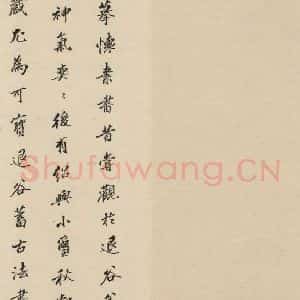 摹懷素書昔嘗觀於退谷
神氣奕〻後有紹興小璽秋
藏尤為可寶退谷蓄古法書
Shufawang.CN